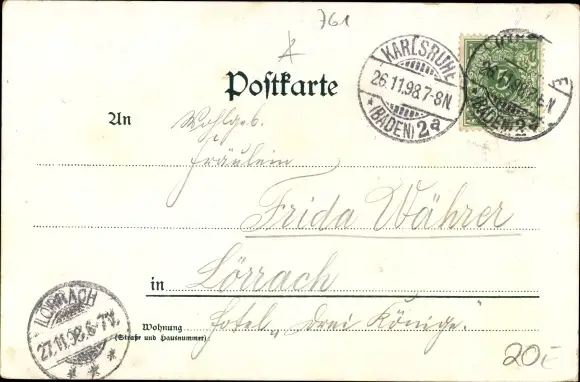 761
Postkarte
KARLSRUHE
26.11.98.7-8N
*(BADEN) 2a
5
(BADEN) 2a
An Wohlgeb.
Fräulein
Frida Währer
in Lörrach
Wohnung
(Straße und Hausnummer)
Hotel „drei Könige."
LÖRRACH
27.11.98.6-7V.
* * *
20.-